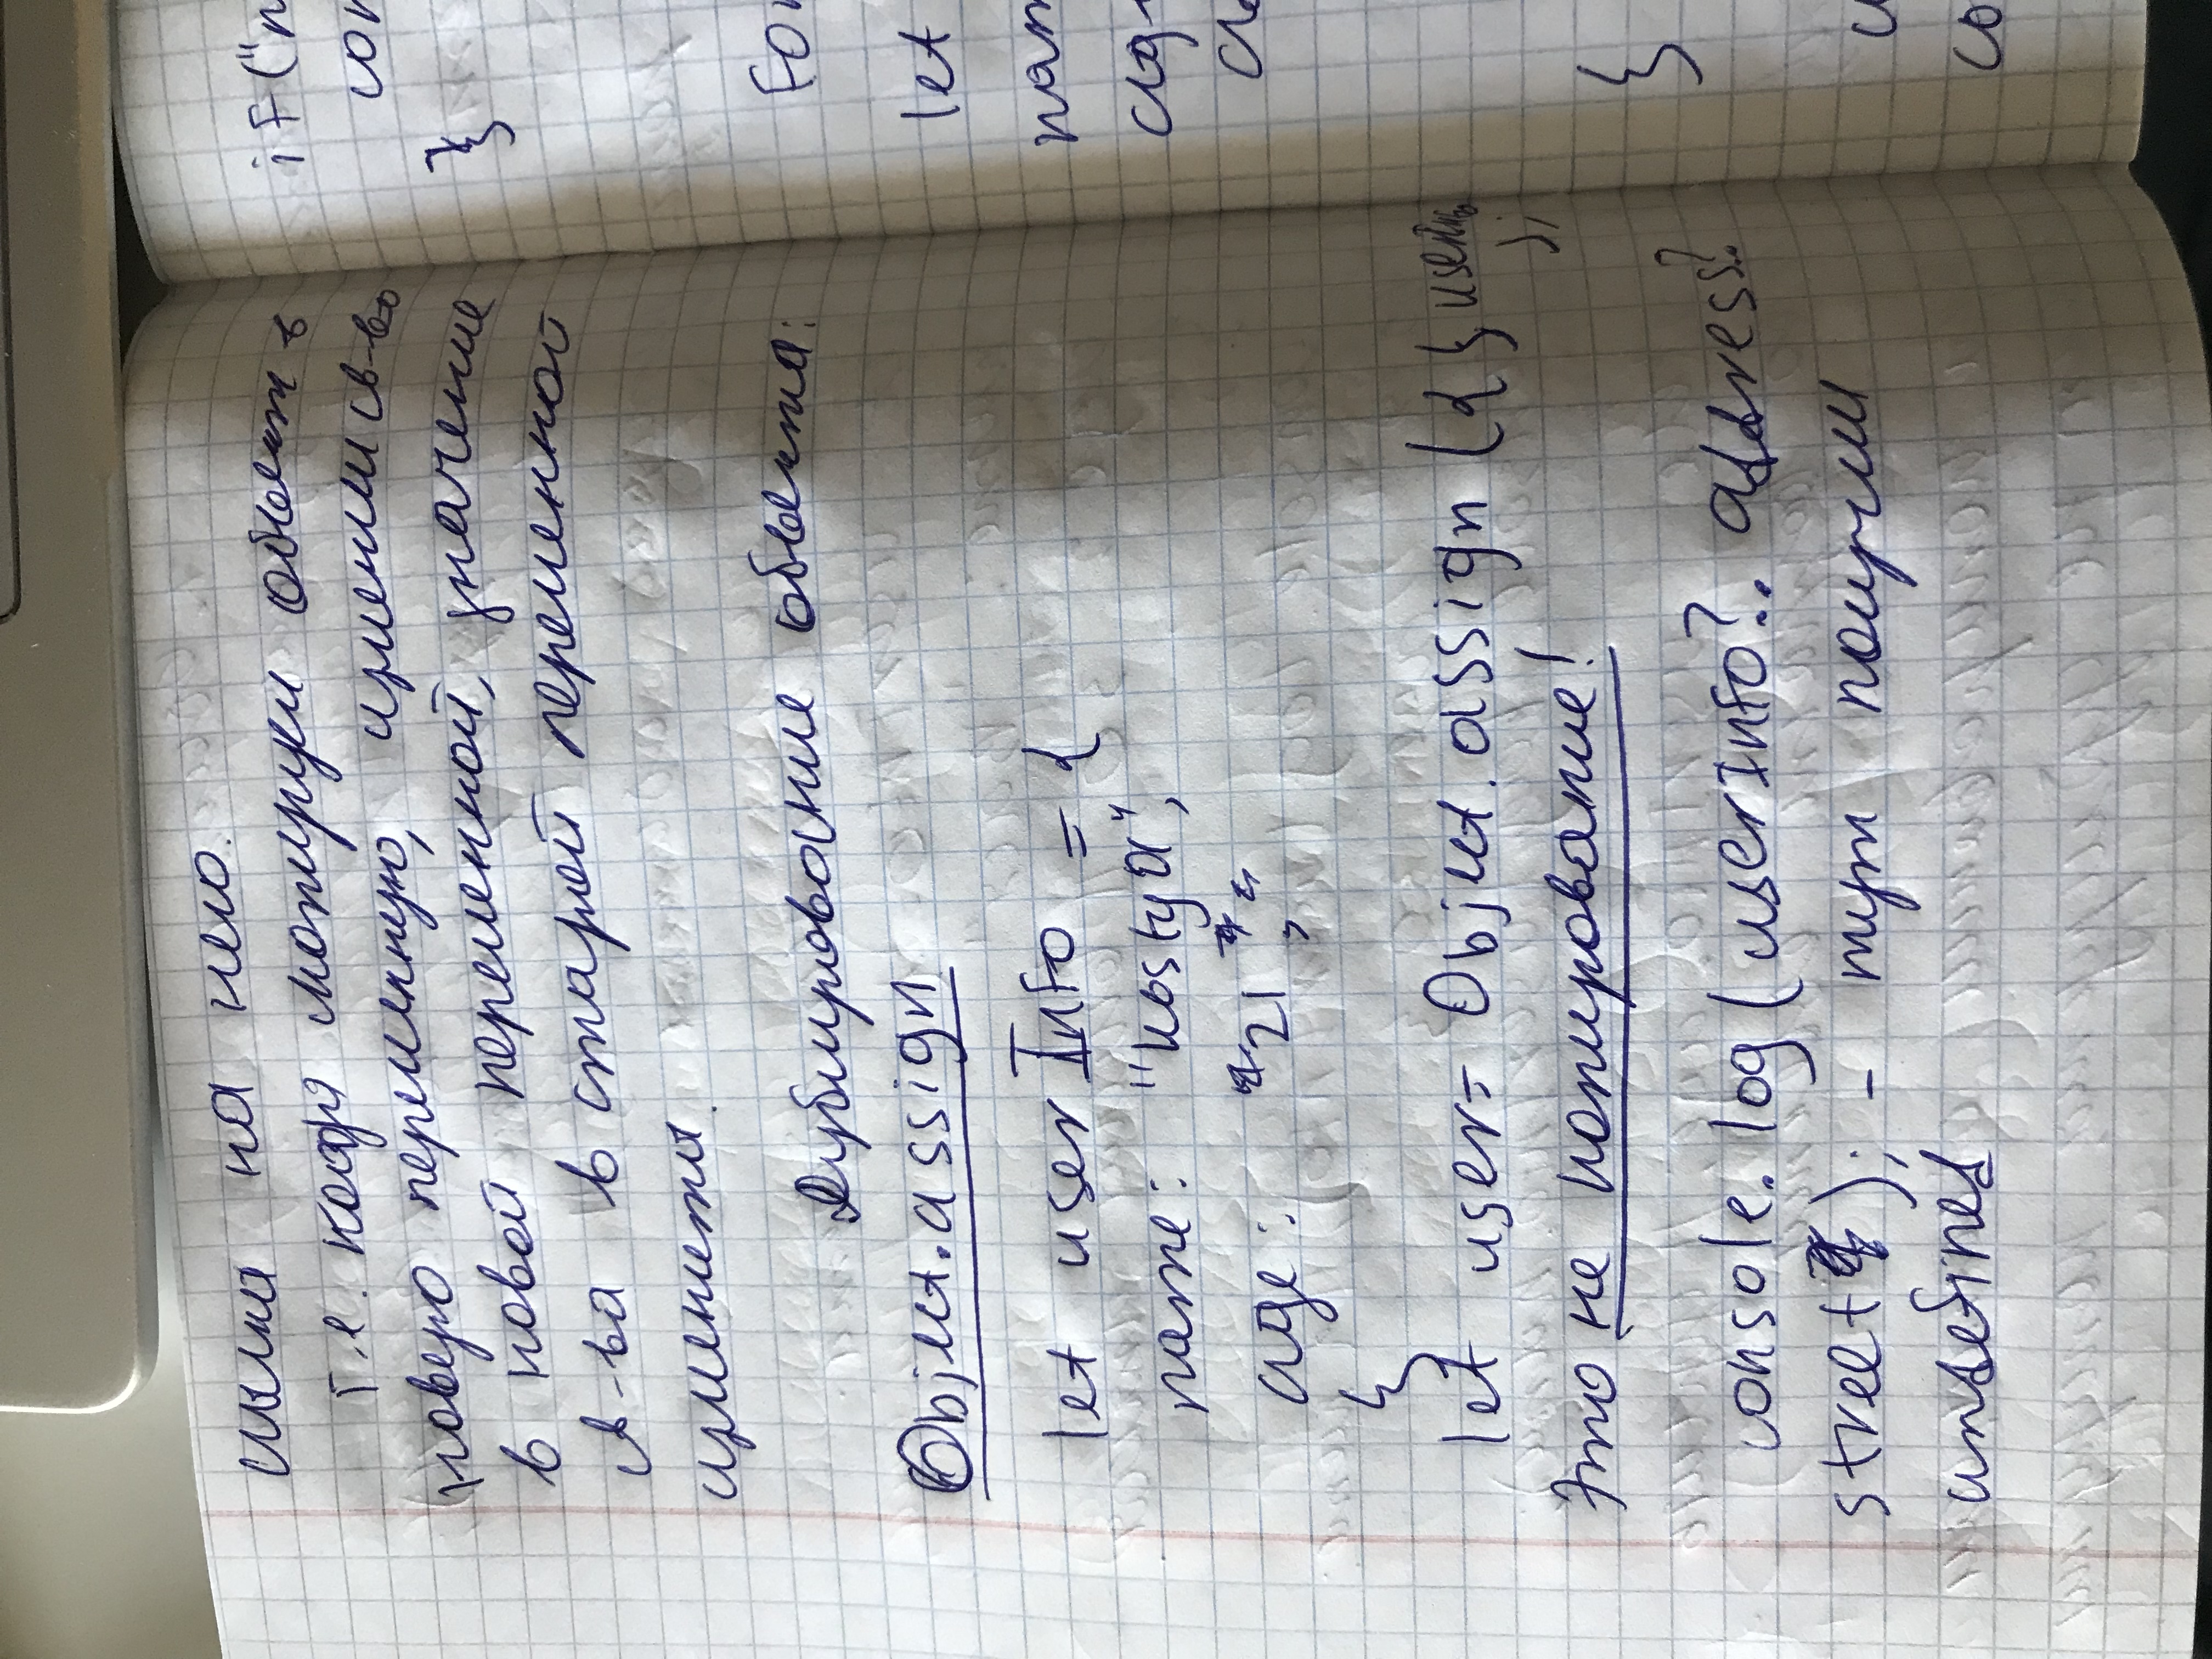 ссылка на него.
т.е. когда копируем объект в
новую переменную, изменив св-во
в новой переменной, значение
св-ва в старой переменной
изменится.
Дублирование объекта:
Object.assign
let userInfo = {
name: "kostya",
age: 21,
}
let user= Object.assign ({} userInfo
);
Это не копирование!
console.log(userInfo?. address?.
street); - тут получим
undefined
if ("n
con
}
For
let
nam
ag
}
co